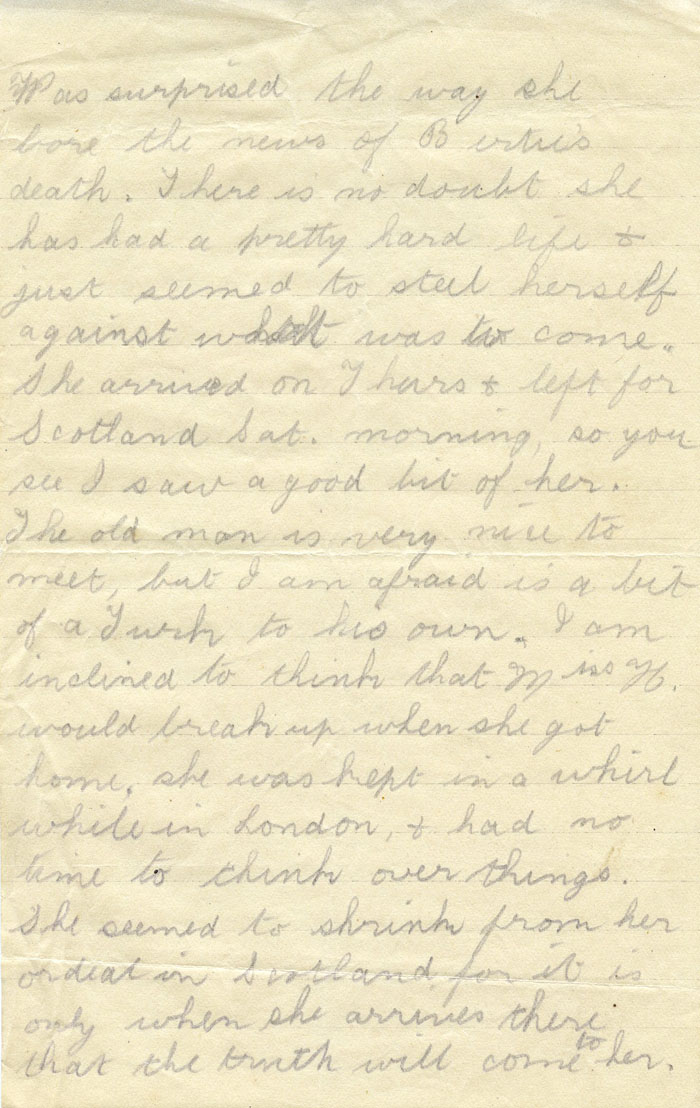 Was surprised the way she
bore the news of Bertie's
death. There is no doubt she
has had a pretty hard life &
just seemed to steel herself
against what was to come.
She arrived on Thurs & left for
Scotland Sat. morning, so you
see I saw a good bit of her.
The old man is very nice to
meet, but I am afraid is a bit
of a Turk to his own. I am
inclined to think that Miss H.
would break up when she got
home, she was kept in a whirl
while in London, & had no
time to think over things.
She seemed to shrink from her
ordeal in Scotland for it is
only when she arrives there
that the truth will come to her.